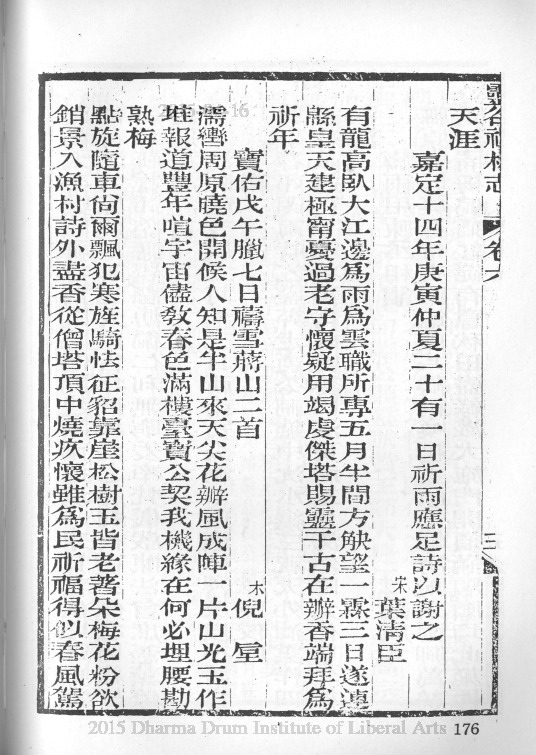 天涯
嘉定十四年庚寅仲夏二十有一日祈雨應足詩以謝之
宋 葉清臣
有龍高臥大江邊為雨為雲職所專五月半間方觖望一霖三日遂連
縣皇天建極甯憂過老守懷疑用竭虔傑塔賜靈千古在瓣香端拜為
祈年
寶佑戊午臘七日禱雪蔣山二首
宋 倪垕
濡轡周原曉色開候人知是半山來天尖花瓣風成陣一片山光玉作
堆報道豐年喧宇宙儘教春色滿樓臺寶公契我機緣在何必埋腰勘
熟梅
點旋隨車尚爾飄犯寒旌騎怯征貂靠崖松樹玉皆老著朵梅花粉欲
銷景入漁村詩外盡香從僧塔頂中燒疚懷雖為民祈福得似春風駕
靈谷禪林志
卷六
2015 Dharma Drum Institute of Liberal Arts 176